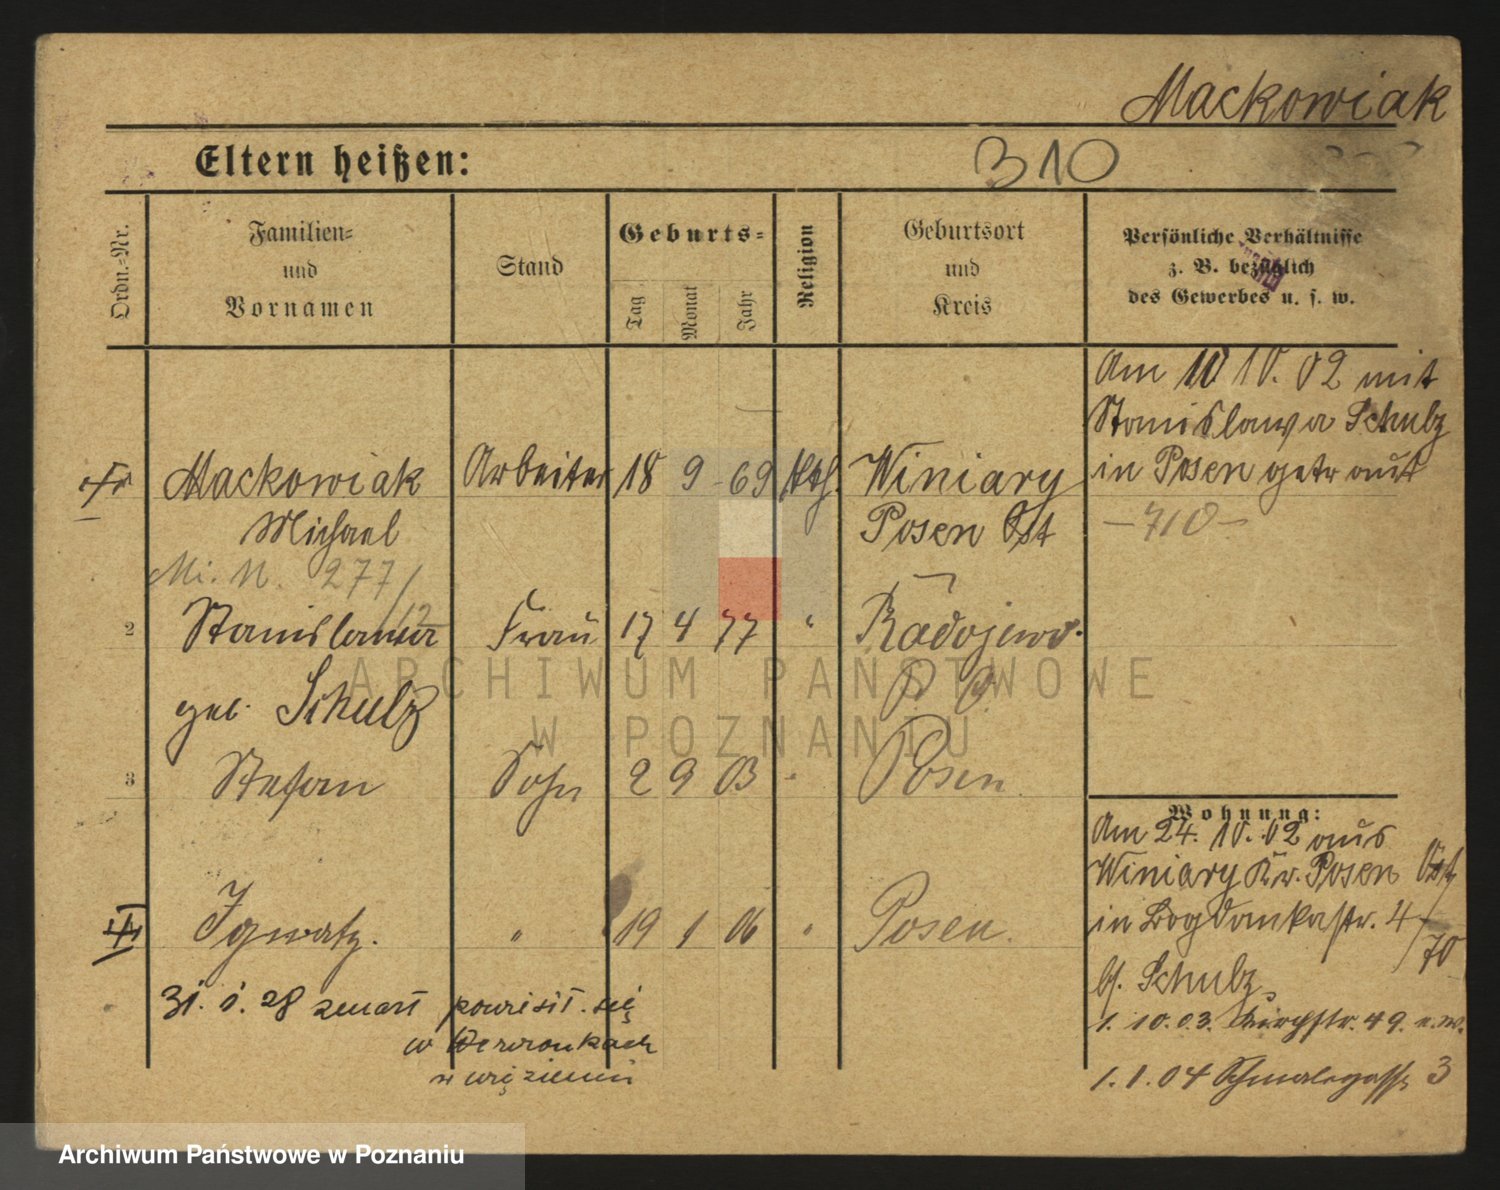 Mackowiak
Eltern heißen:
310
Ordn.-Nr.
Familien-
und
Vornamen
Stand
Geburts-
Tag
Monat
Jahr
Religion
Geburtsort
und
Kreis
Persönliche Verhältnisse
z. B. bezüglich
des Gewerbes u. s. w.
Am 10 10. 02 mit
Stanislawa Schulz
in Posen getraut
— 710 —
Mackowiak Arbeiter 18 9 69 Kth. Winiary
Michael Posen Ost
Mi. N. 277/12
2 Stanislawa Frau 17 4 77 " Radojewo
geb. Schulz P. O.
3 Stefan Sohn 2 9 03 " Posen
Ignatz. " 19 1 06 " Posen.
31. 1. 28 zmarł powiesił się
w Wronkach
w więzieniu
Wohnung:
Am 24. 10. 02 aus
Winiary Kr. Posen Ost
in Bogdankastr. 4/70
bf. Schulz
1. 10. 03. Kirchstr. 49. n. w.
1. 1. 04 Schmalegasse 3
ARCHIWUM PAŃSTWOWE
W POZNANIU
Archiwum Państwowe w Poznaniu